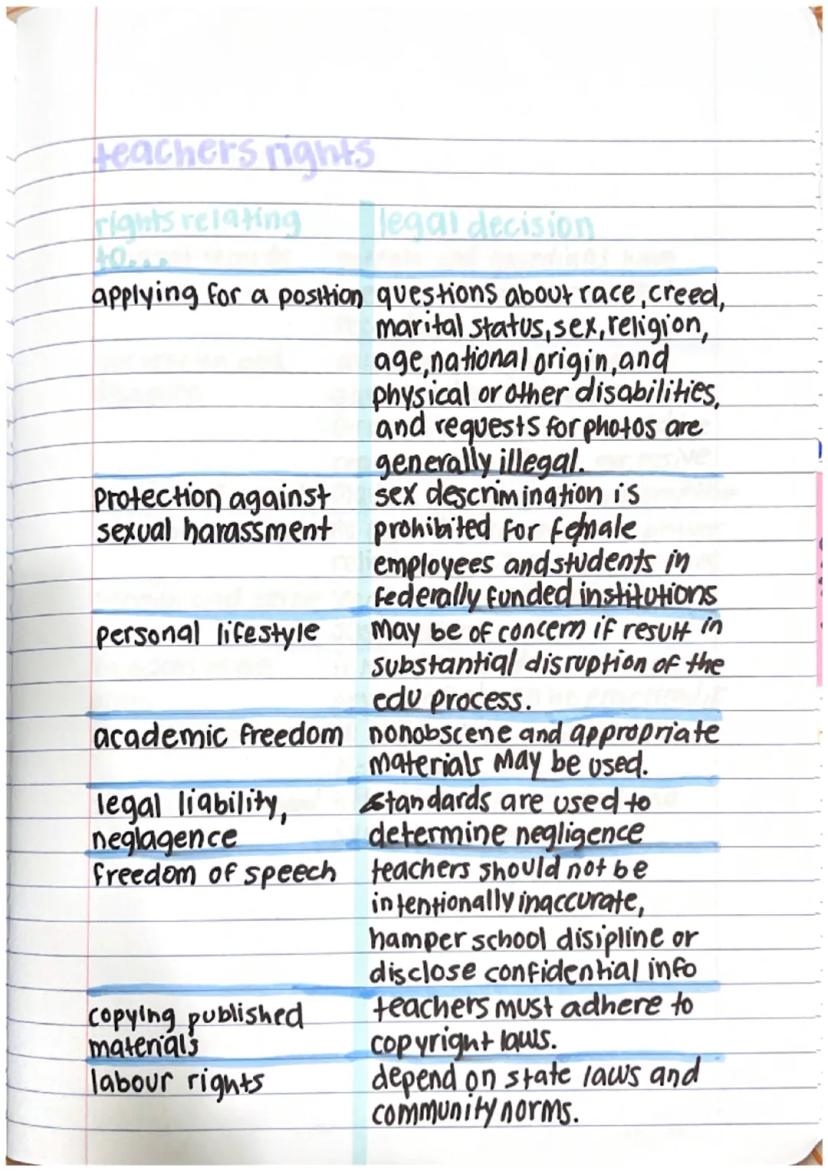 teachers rights
rights relating
to...
legal decision
applying for a position
questions about race, creed,
marital status, sex, religion,
age, national origin, and
physical or other disabilities,
and requests for photos are
generally illegal.
Protection against
sexual harassment
sex descrimination is
prohibited for female
employees and students in
federally funded institutions
personal lifestyle
may be of concern if result in
substantial disruption of the
edu process.
academic freedom
nonobscene and appropriate
materials may be used.
legal liability,
neglagence
standards are used to
determine negligence
freedom of speech
teachers should not be
intentionally inaccurate,
hamper school disipline or
disclose confidential info
copying published
materials
teachers must adhere to
copyright laws.
labour rights
depend on state laws and
community norms.